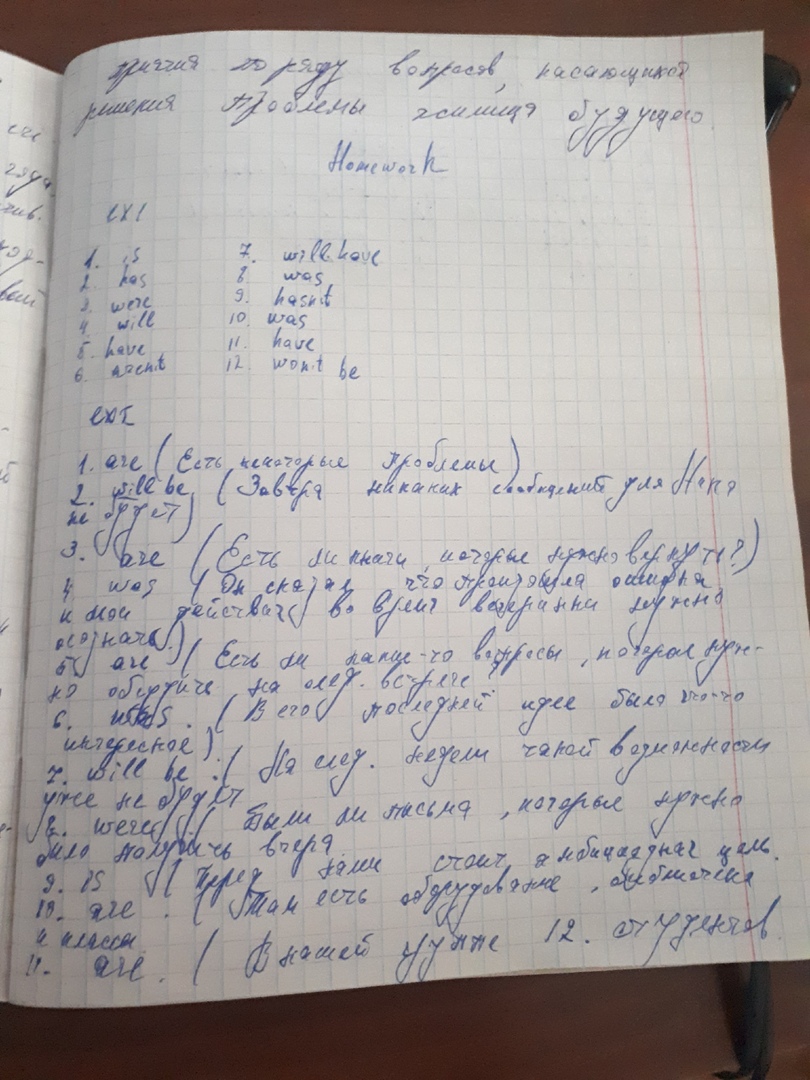 по ряду вопросов, касающихся
решения проблемы жилища будущего.
Homework
ex1
1. is
2. has
3. were
4. will
5. have
6. aren't
7. will have
8 was
9. hasn't
10. was
11. have
12. won't be
ex2
1. are (Есть некоторые проблемы)
2. will be (Завтра никаких сообщений для Ника
не будет)
3. are (Есть ли книги, которые нужно вернуть?)
4 was (Он сказал что произошла ошибка
и мои действия во время вечеринки нужно
осознать.)
5. are (Есть ли какие-то вопросы, которые нуж-
но обсудить на след. встрече?
6. was. (В его последней идее было что-то
интересное)
7. will be. (На след. недели такой возможности
уже не будет
8. were (Были ли письма, которые нужно
было получить вчера.
9. is (Перед нами стоит амбициозная цель.
10. are. (Там есть оборудование, библиотека
и классы
11. are. (В нашей группе 12. студентов.